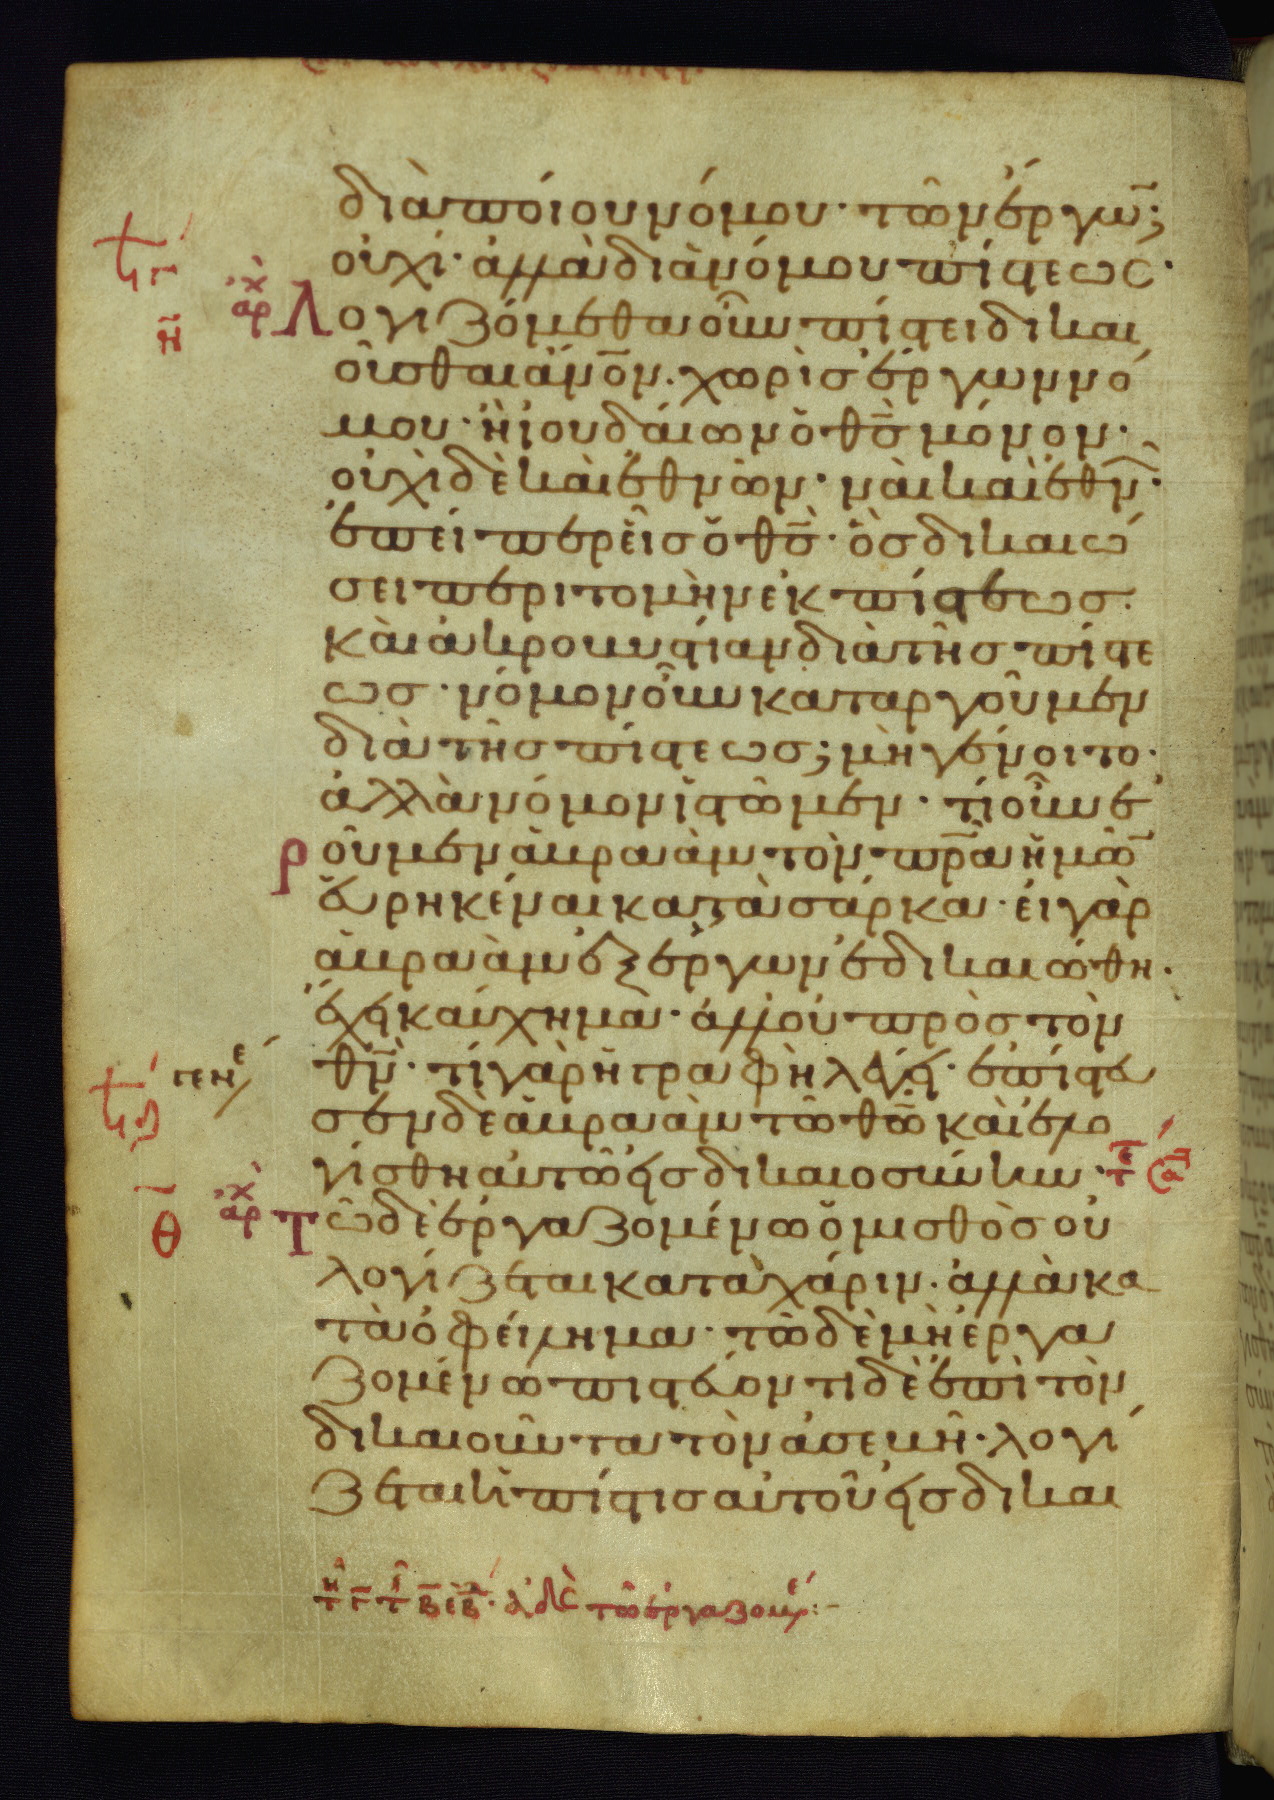 διὰ ποίου νόμου· τῶν ἔργω̄;
οὐχί· ἀλλὰ διὰ νόμου πίστεως·
Λογιζόμεθα οὖν πίστει δικαι
οῦσθαι ἄν̄ον. χωρὶς ἔργων νό
μου· ἢ ἰουδαίων ὁ θ̄ς μόνον·
οὐχὶ δὲ καὶ ἐθνῶν· ναὶ καὶ ἐθν·
ἐπεί περ εἷς ὁ θ̄ς· ὃς δικαιώ
σει περιτομὴν ἐκ πίστεως.
καὶ ἀκροβυστίαν διὰ τῆς πίστε
ως· νόμον οὖν καταργοῦμεν
διὰ τῆς πίστεως; μὴ γένοιτο·
ἀλλὰ νόμον ἱστῶμεν· τί οὖν ἐ
ροῦμεν ἀβραὰμ τὸν π̄ρα ἡμῶ̄
εὑρηκέναι κατὰ σάρκα· εἰ γὰρ
ἀβραὰμ ἐξ ἔργων ἐδικαιώθη·
ἔχει καύχημα· ἀλλ' οὐ πρὸς τὸν
θ̄ν· τί γὰρ ἡ γραφὴ λέγει· ἐπίστευ
σεν δὲ ἀβραὰμ τῶ θ̄ω καὶ ἐλο
γίσθη αὐτῶ εἰς δικαιοσύνην·
Τῶ δὲ ἐργαζομένω ὁ μισθὸς οὐ
λογίζεται κατα χάριν. ἀλλὰ κα
τὰ ὀφείλημα· τῶ δὲ μὴ ἐργα
ζομένω πιστεύοντι δὲ ἐπὶ τὸν
δικαιοῦντα τὸν ἀσεβῆ· λογί
ζεται ἡ πίστις αὐτοῦ εἰς δικαι
γ
ἀρχ
η̄
γενε
ἀρχ
θ̄
τῶ ἐργαζομε:-